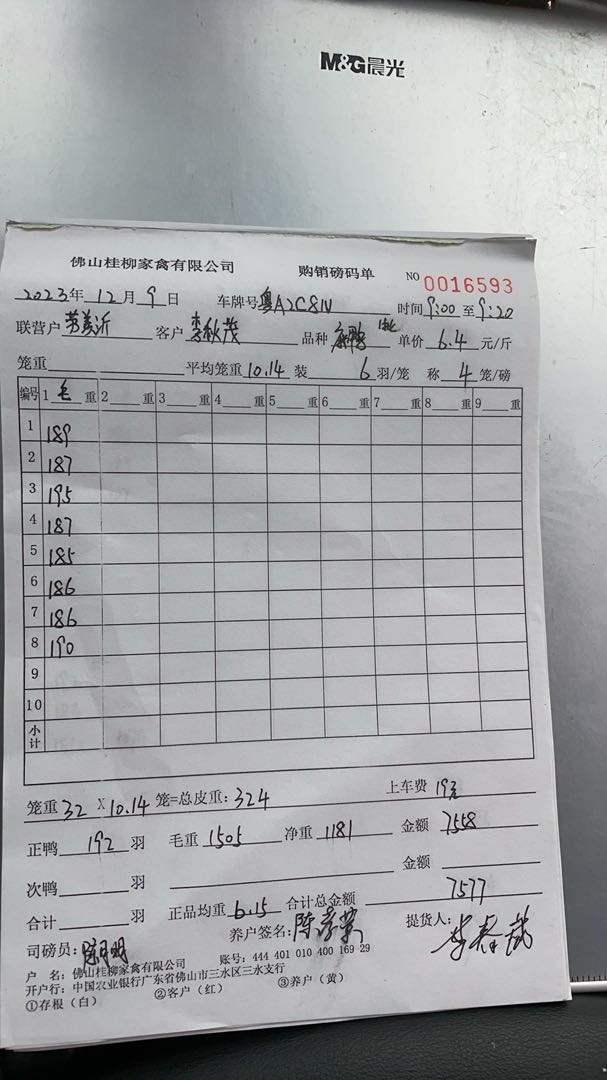 M&G晨光
佛山桂柳家禽有限公司 购销磅码单 NO 0016593
2023年12月9日 车牌号粤A2C81V 时间9:00至9:20
联营户 客户李秋茂 品种 单价6.4元/斤
笼重 平均笼重10.14装 6羽/笼 称4笼/磅
编号 1毛重 2重 3重 4重 5重 6重 7重 8重 9重
1 189
2 187
3 195
4 187
5 185
6 186
7 186
8 190
9
10
小计
笼重32×10.14笼=总皮重:324 上车费19元
正鸭192羽 毛重1505 净重1181 金额7558
次鸭羽 金额
合计羽 正品均重6.15 合计总金额7577
司磅员: 养户签名: 提货人:
户 名:佛山桂柳家禽有限公司 账号:444 401 010 400 169 29
开户行:中国农业银行广东省佛山市三水区三水支行
①存根(白) ②客户(红) ③养户(黄)